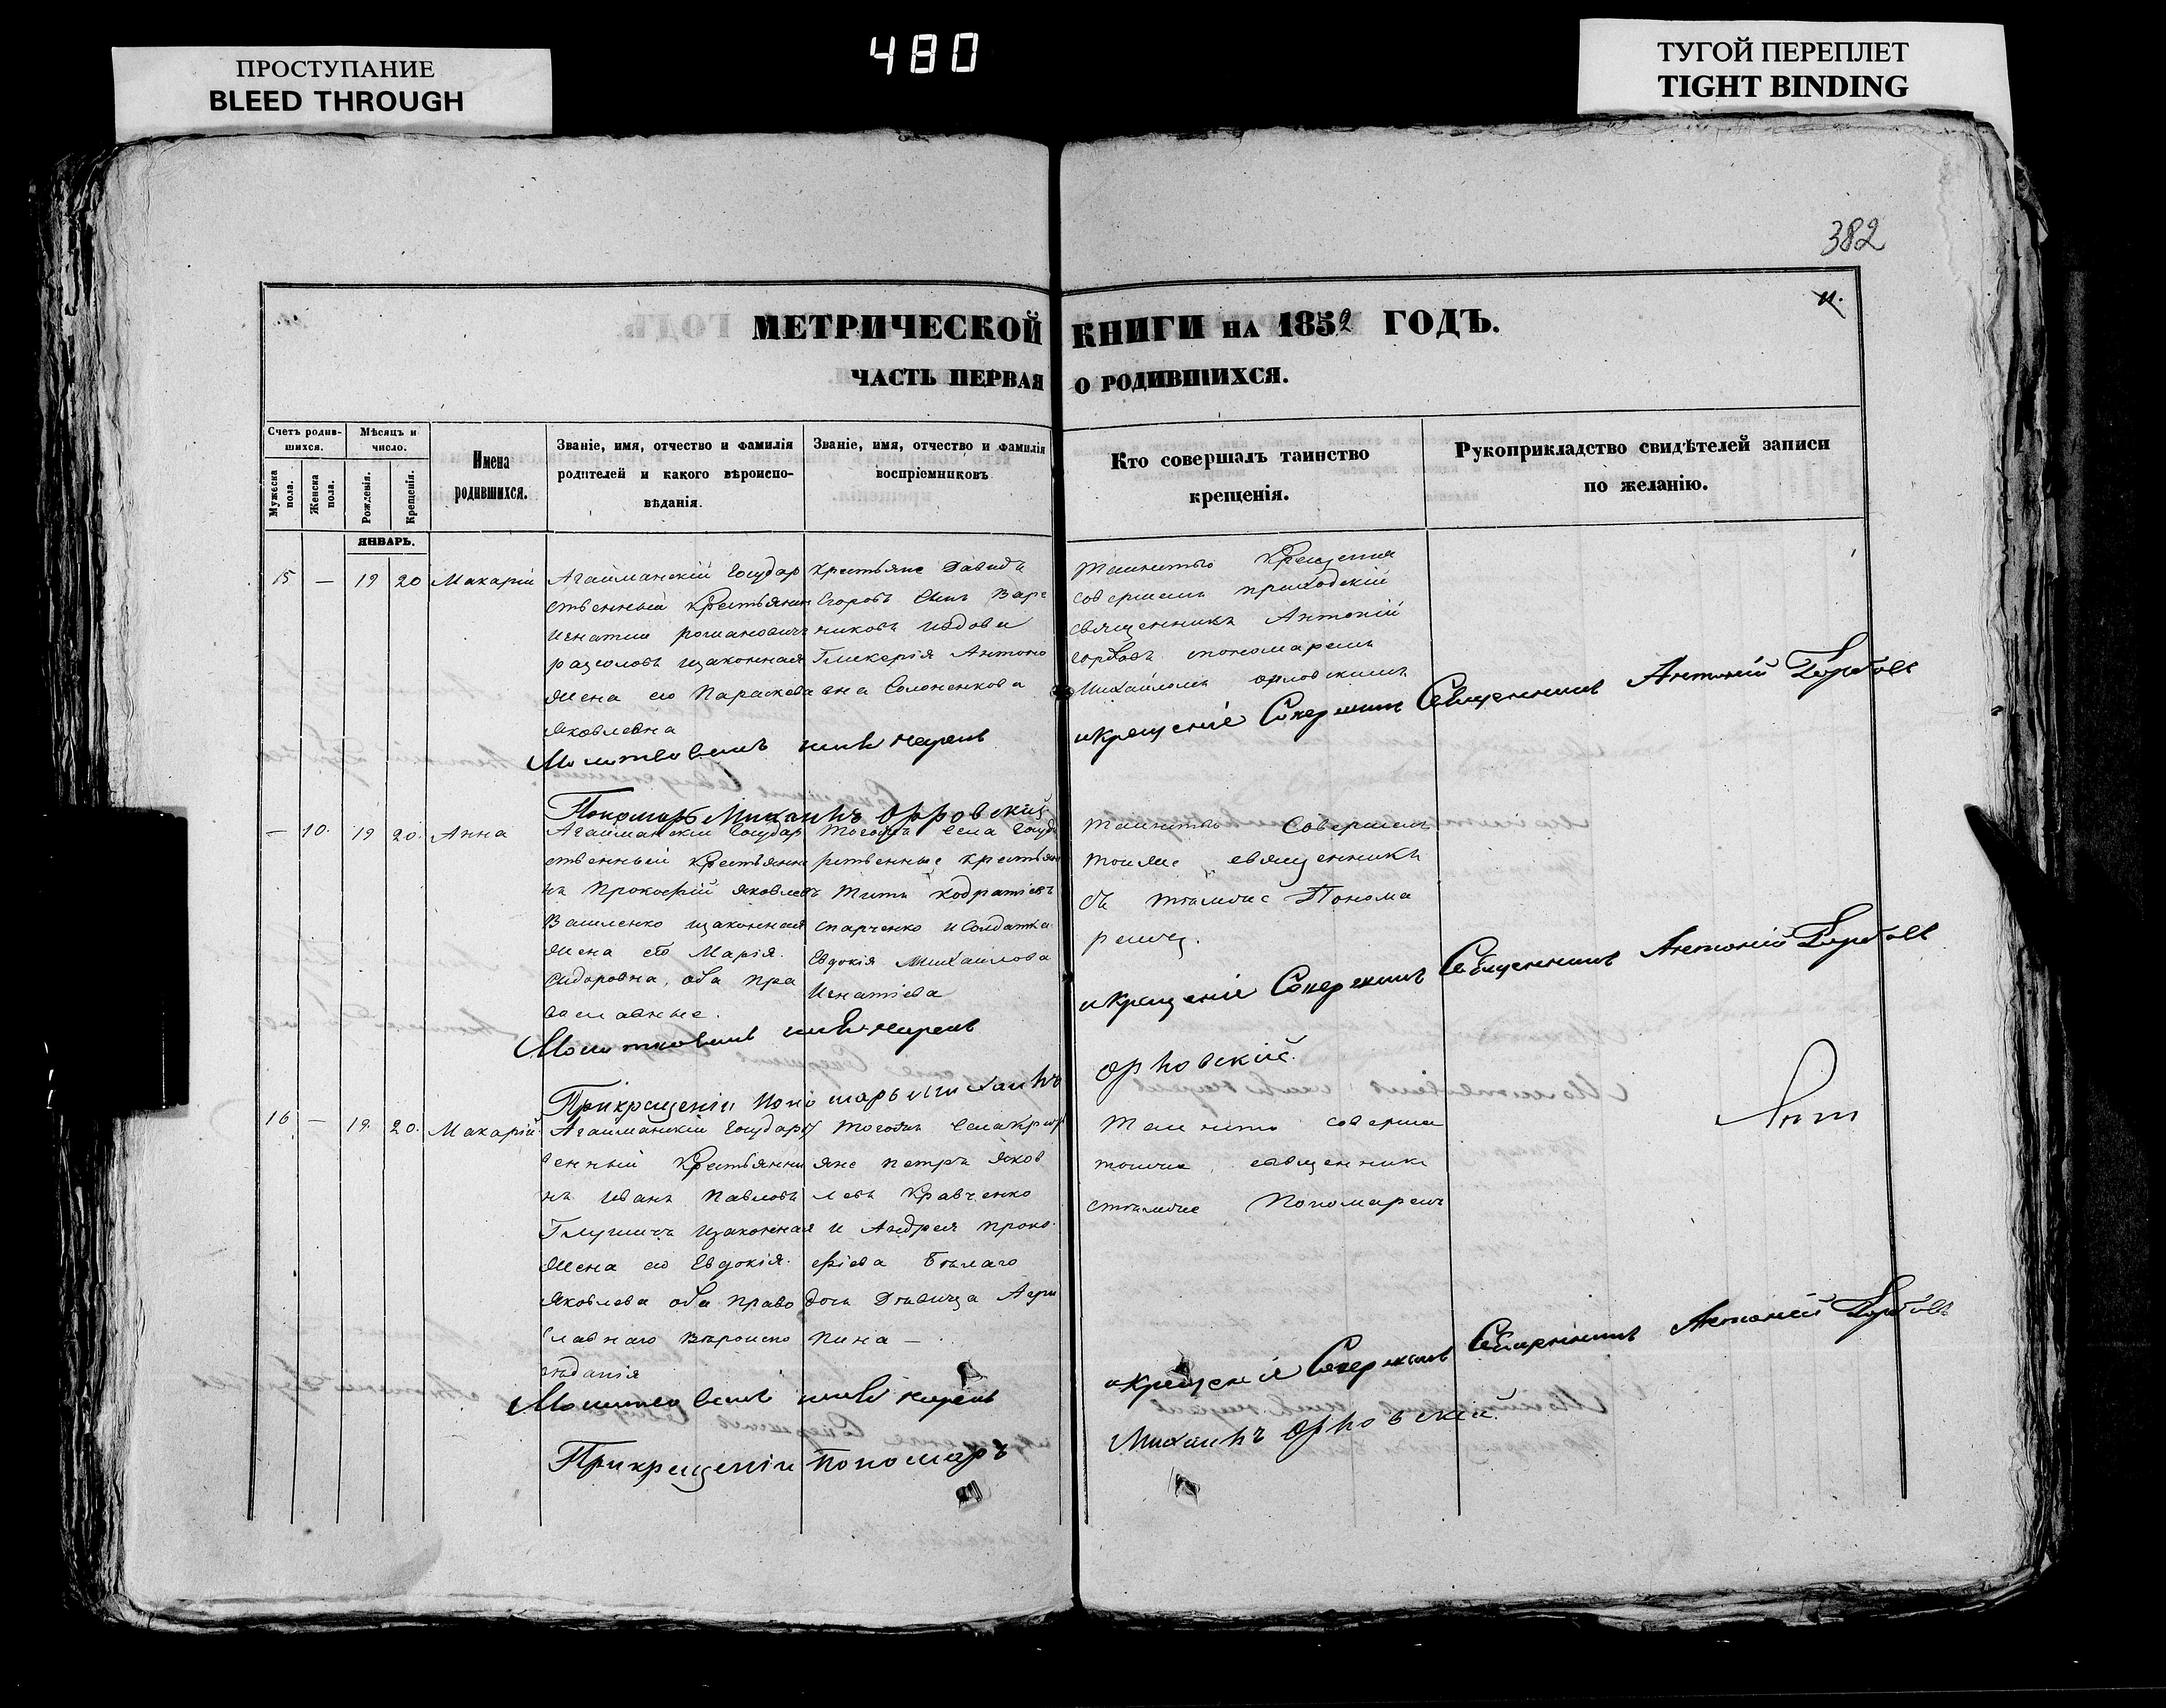 ПРОСТУПАНИЕ
BLEED THROUGH
480
ТУГОЙ ПЕРЕПЛЕТ
TIGHT BINDING
382
11.
МЕТРИЧЕСКОЙ КНИГИ НА 1852 ГОДЪ.
ЧАСТЬ ПЕРВАЯ О РОДИВШИХСЯ.
Счетъ родив-
шихся.
Мужеска
пола.
Женска
пола.
Мѣсяцъ и
число.
Рожденія.
Крещенія.
Имена
родившихся.
Званіе, имя, отчество и фамилія
родителей и какого вѣроиспо-
вѣданія.
Званіе, имя, отчество и фамилія
воспріемниковъ
Кто совершалъ таинство
крещенія.
Рукоприкладство свидѣтелей записи
по желанію.
ЯНВАРЬ.
15 — 19 20 Макарій
Агайманскій Государ
ственный крестьянин
Игнатий романович
изаконная
жена его Параскева
Яковлевна
крестьяне Давидъ
Егоровъ сынъ Варе
никовъ ивдова
Гликерія Антоно
вна Солоненкова
таинство Крещения
совершалъ приходскій
священникъ Антоній
спономаремъ
Михаиломъ орловскимъ
Молитвовалъ имѣ нарекъ
икрещеніе Совершилъ Священникъ Антоній
Пономарь Михаилъ Орловскій
— 10. 19 20. Анна
Агайманскій Государ
ственный крестьяни
нъ Прокофій Яковлевъ
изаконная
жена его Марія
Сидоровна, оба пра
вославные.
тогожъ села Госуда
рственные крестьян
Титъ Кодратіевъ
исолдатка
Евдокія Михаилова
Игнатіева
таинство Совершалъ
тоиже священникъ
съ тѣмже Понома
ремъ.
Молитвовалъ имѣ нарекъ
икрещеніе Совершилъ Священникъ Антоній
Прикрещеніи пономарь Михаилъ
Орловскій.
16 — 19. 20. Макарій
Агайманскій Государст
венный Крестьяни
нъ Иванъ Павловъ
изаконная
жена его Евдокія
Яковлева оба право
славнаго вѣроиспо
вѣданія
тогожъ села крест
яне петръ яков
левъ Кравченко
и Андрея проко
фіева Бѣлаго
дочь Дѣвица Агри
пина —
таинство соверша
тоиже священникъ
стѣмже Пономаремъ
Ант
Молитвовалъ имѣ нарекъ
икрещеніе Совершилъ Священникъ Антоній
Прикрещеніи Пономарь
Михаилъ Орловскій.